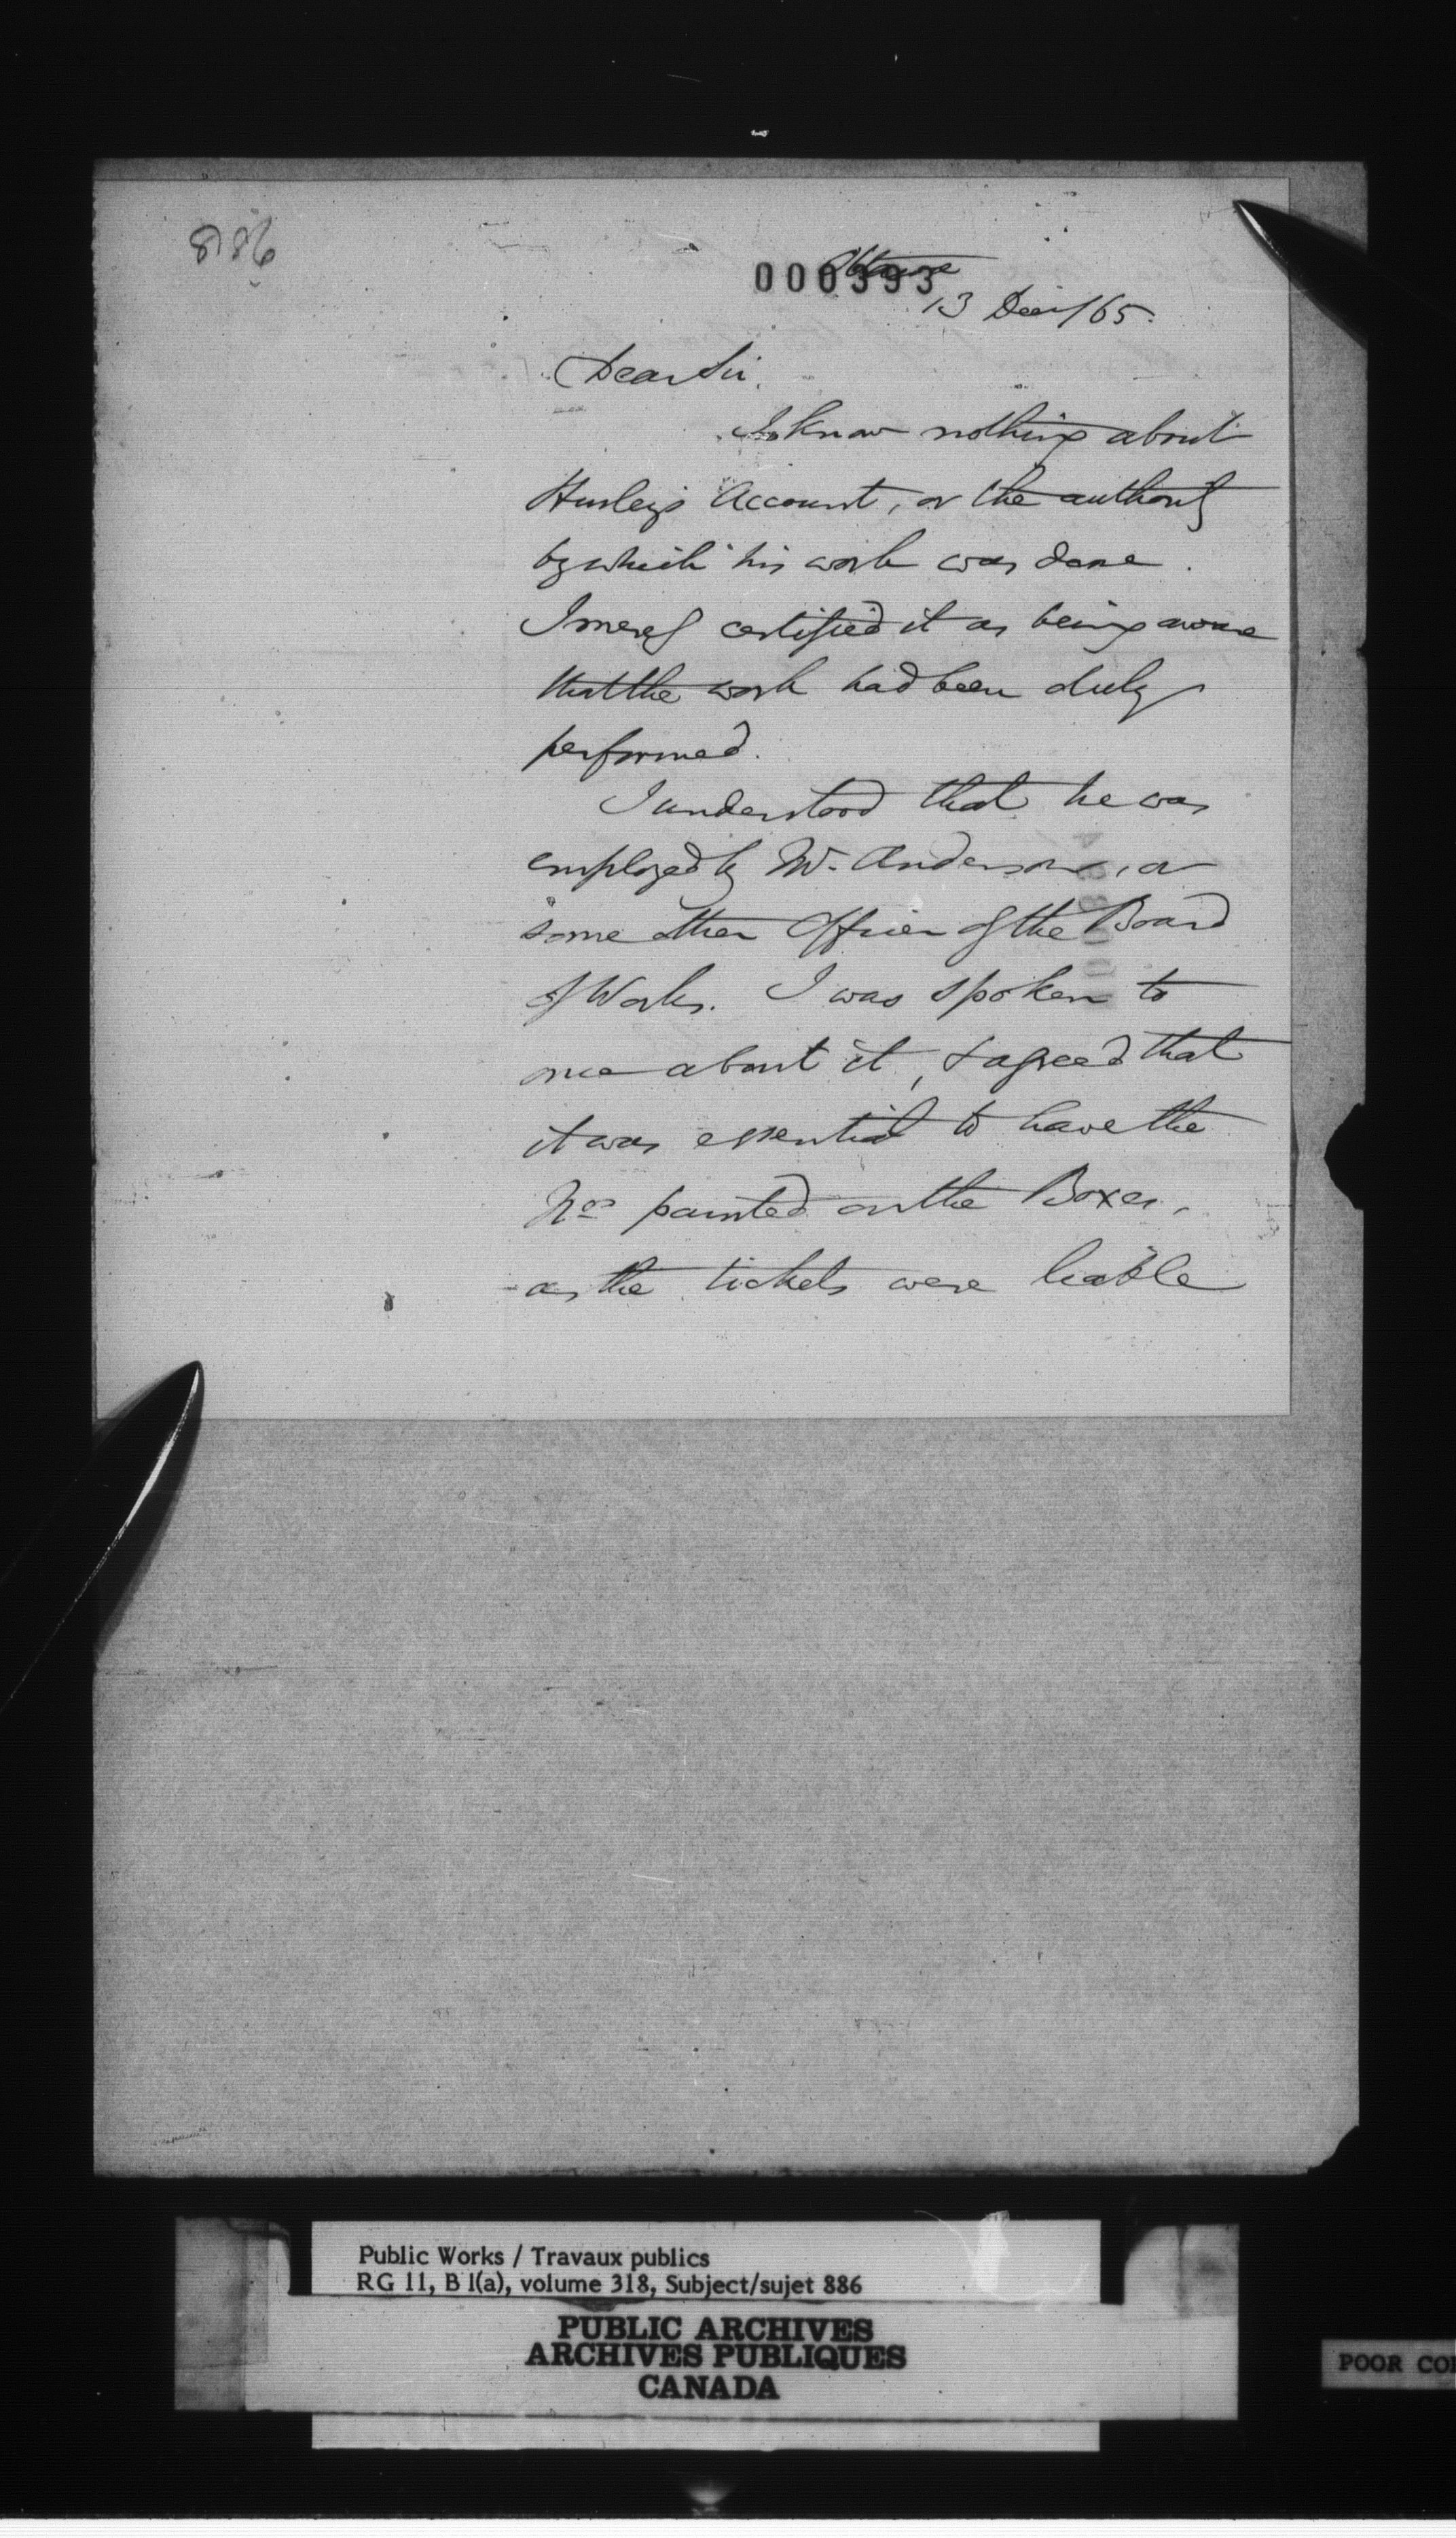 886
Ottawa
000393
13 Decr/65.
Dear Sir,
I know nothing about
Hurley's Account, or the authority
by which his work was done.
I merely certified it as being aware
that the work had been duly
performed.
I understood that he was
employed by Mr. Anderson, or
some other Officer of the Board
of Works. I was spoken to
once about it, & agreed that
it was essential to have the
Nos painted on the Boxes,
as the tickets were liable
Public Works / Travaux publics
RG 11, B 1(a), volume 318, Subject/sujet 886
PUBLIC ARCHIVES
ARCHIVES PUBLIQUES
CANADA
POOR CO